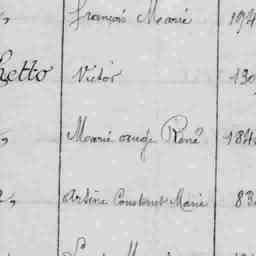 François Marie 194
hetto Victor 130
Marie ange René 184
Arsène Constant Marie 83